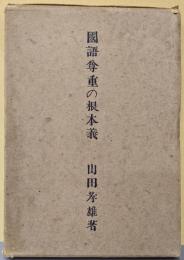 國語尊重の根本義 山田孝雄著